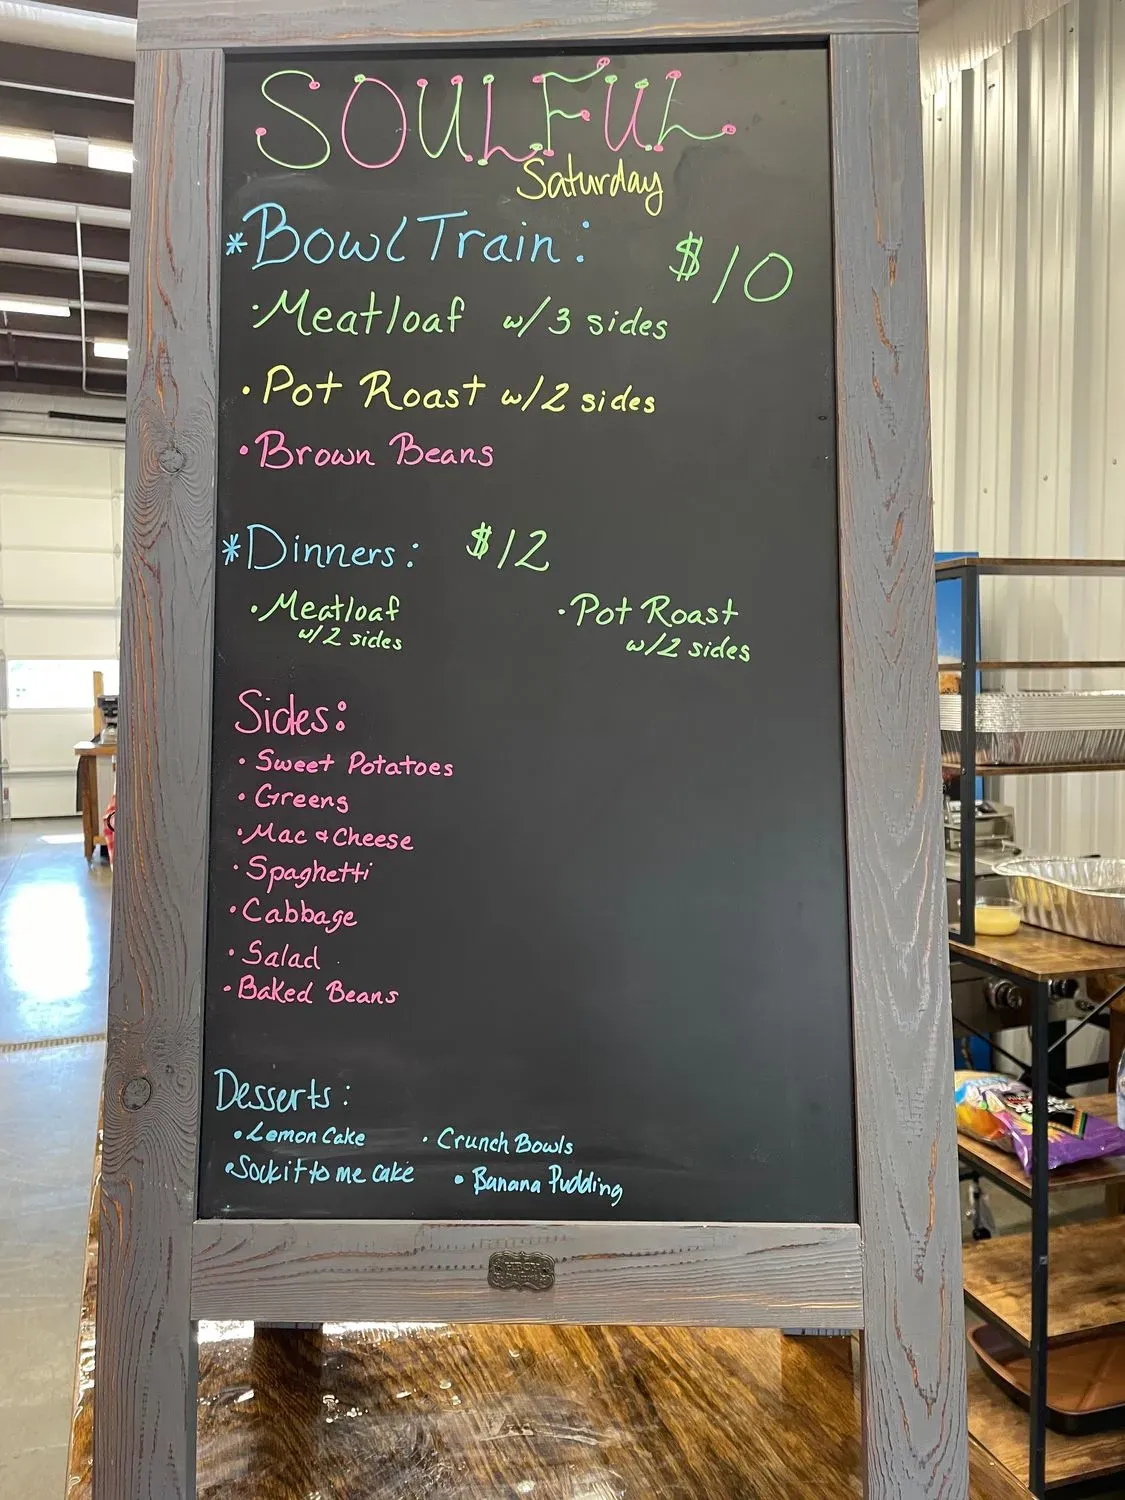 SOULFUL
Saturday
*Bowl Train: $10
·Meatloaf w/3 sides
·Pot Roast w/2 sides
·Brown Beans
*Dinners: $12
·Meatloaf ·Pot Roast
w/2 sides w/2 sides
Sides:
·Sweet Potatoes
·Greens
·Mac & Cheese
·Spaghetti
·Cabbage
·Salad
·Baked Beans
Desserts:
·Lemon Cake ·Crunch Bowls
·Sock it to me cake ·Banana Pudding